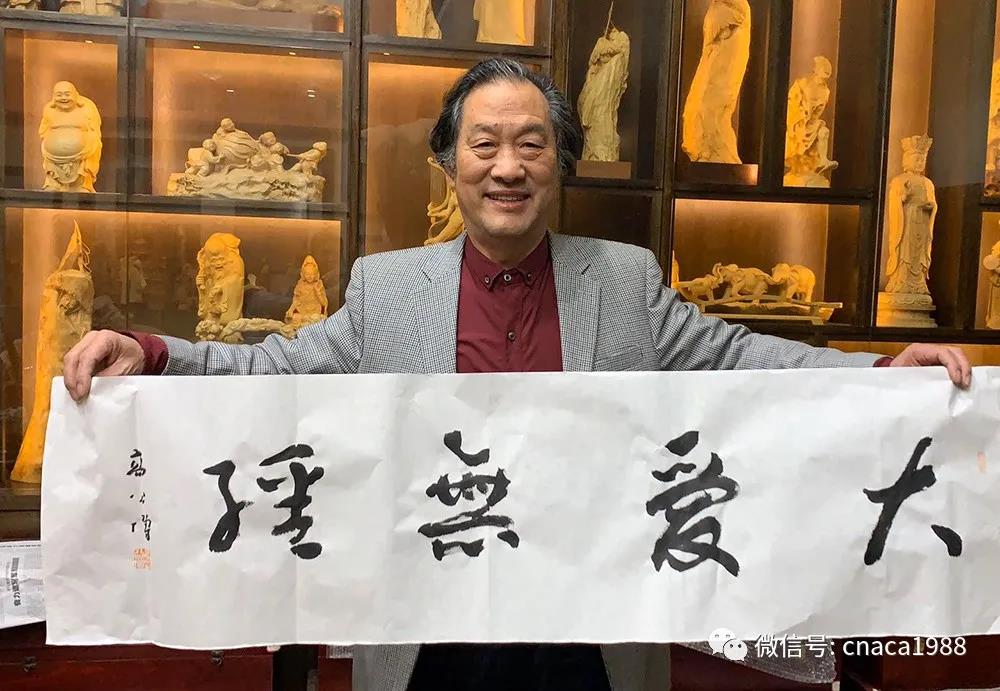 大爱無疆
高公博
微信号: cnaca1988